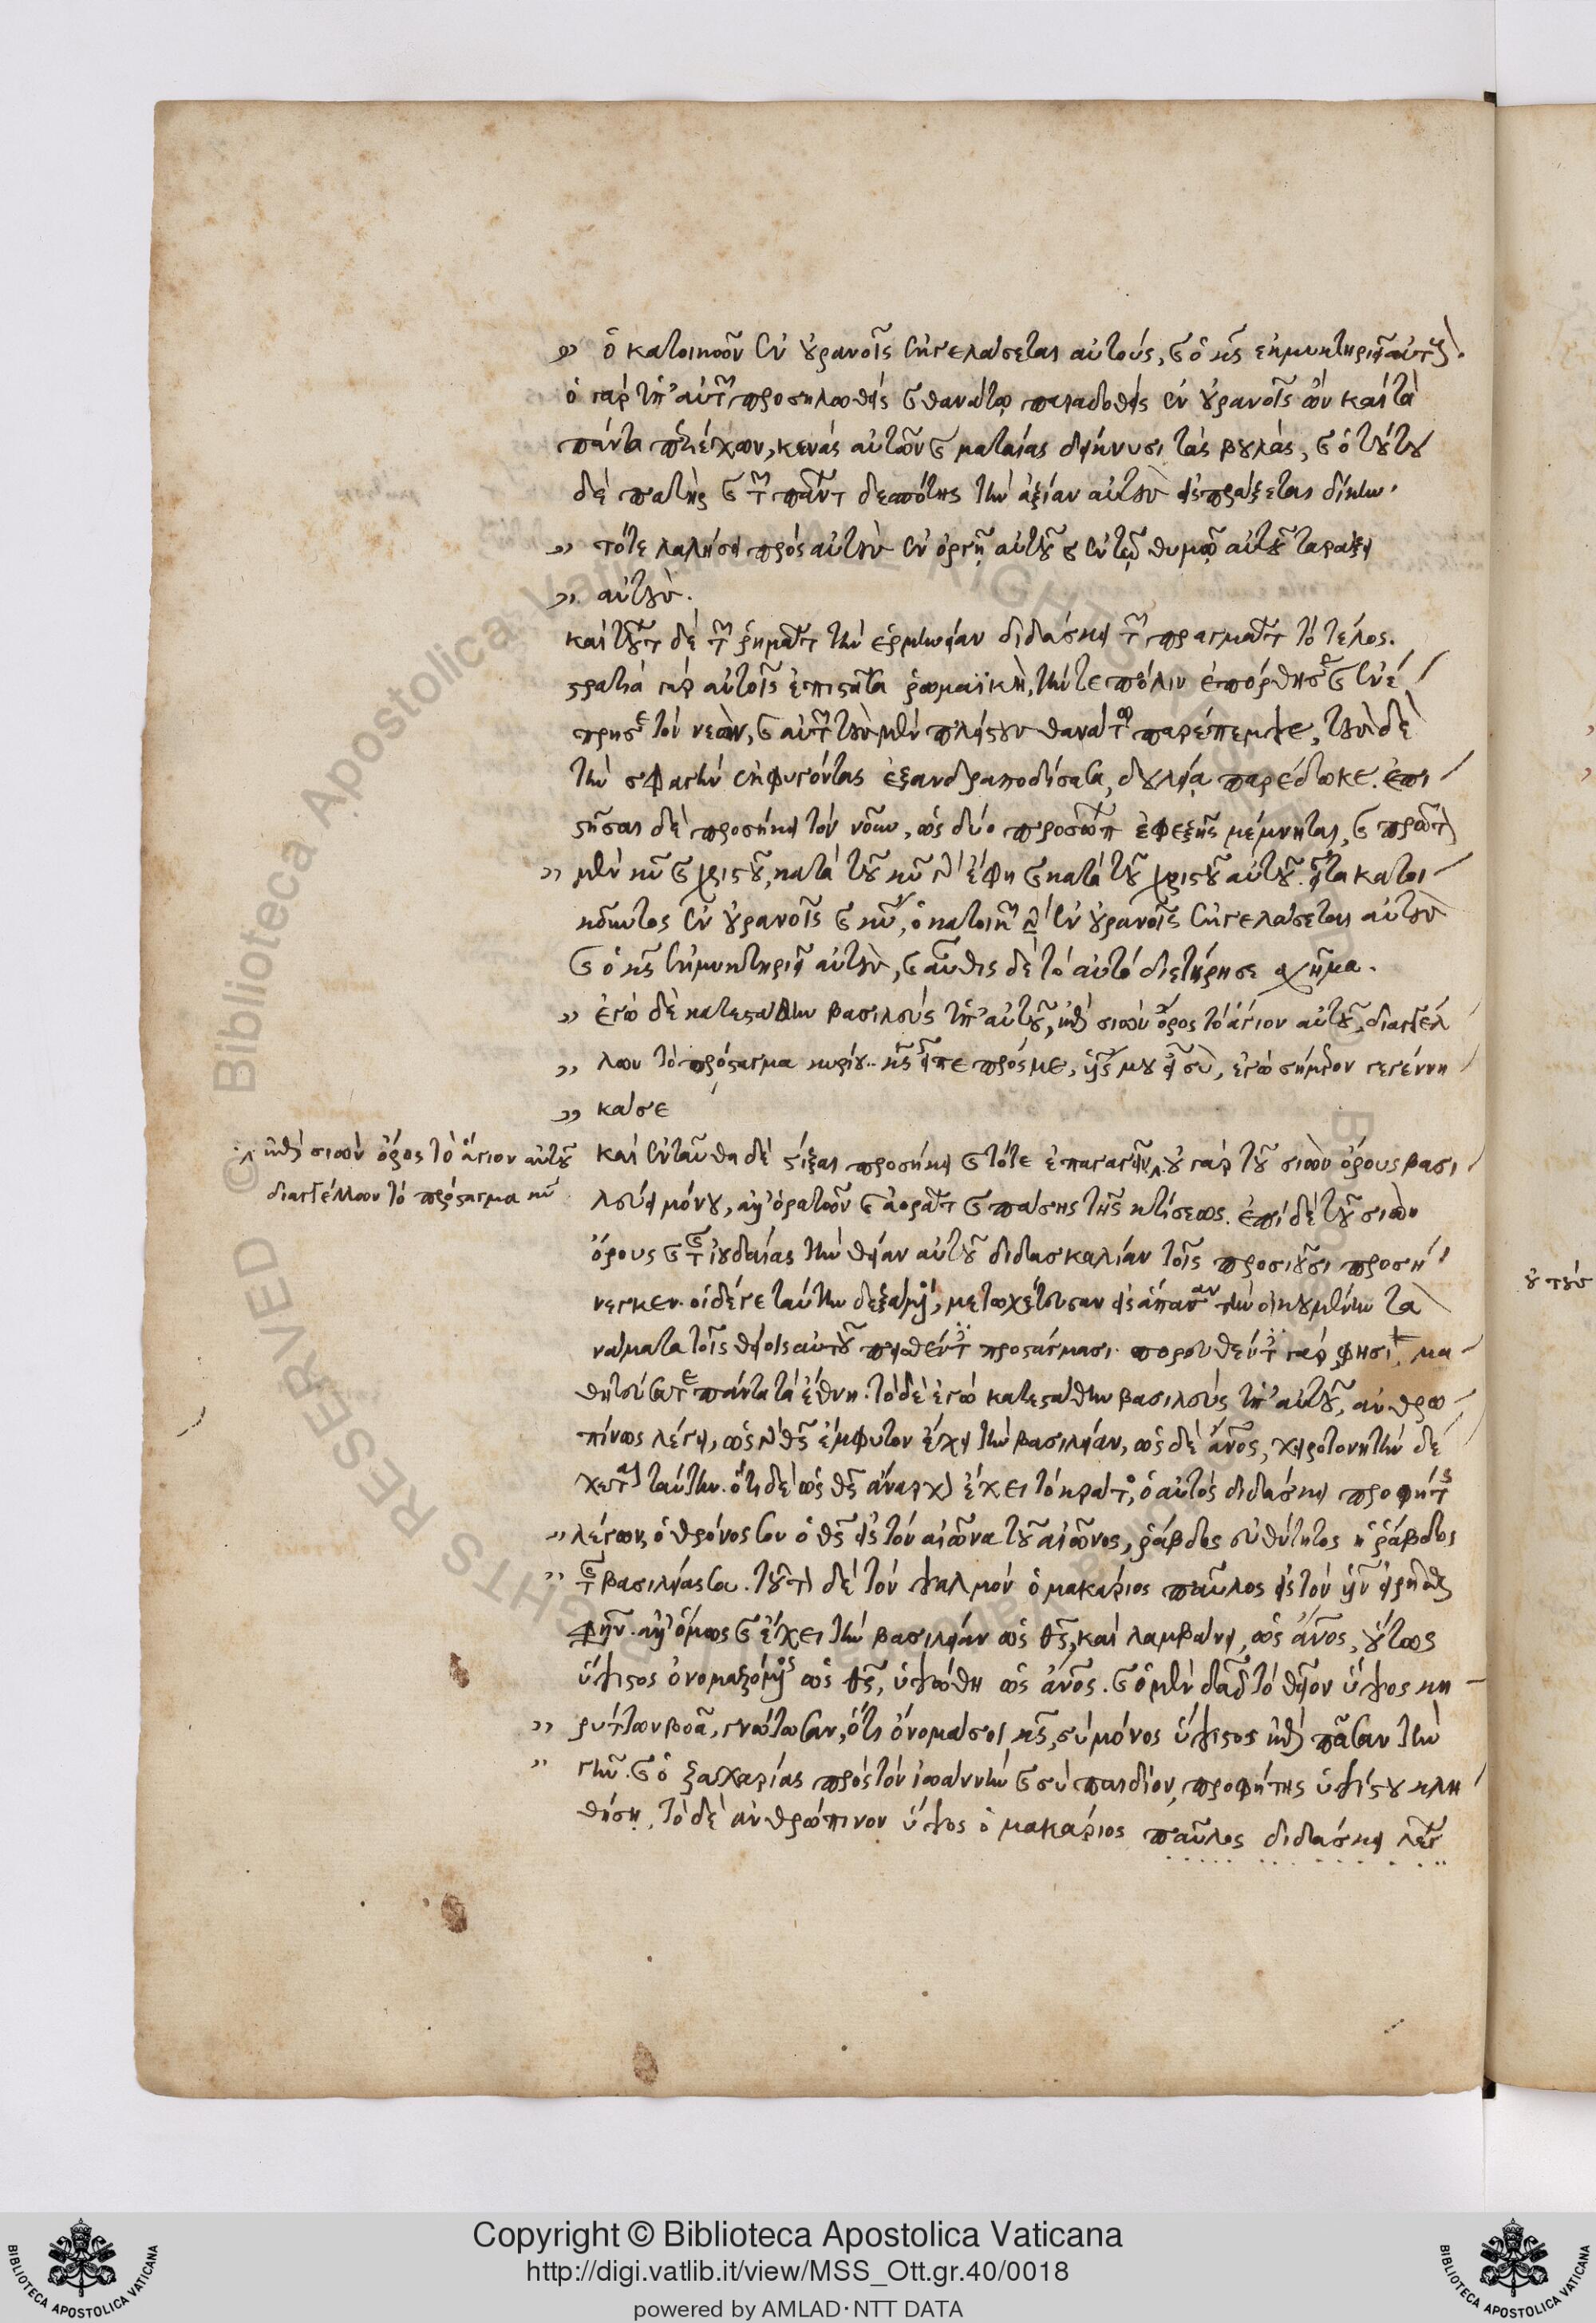 ” ὁ κατοικῶν ἐν οὐρανοῖς ἐκγελάσεται αὐτούς, καὶ ὁ κς ἐκμυκτηριεῖ αὐτούς.
ὁ γὰρ ὑπ' αὐτῶν προσηλωθεὶς καὶ θανάτω παραδοθεὶς ἐν οὐρανοῖς ὢν καὶ τὰ
πάντα περιέχων, κενὰς αὐτῶν καὶ ματαίας δείκνυσι τὰς βουλάς, καὶ ὁ τούτου
δὲ πατὴρ καὶ τῶν πάντων δεσπότης τὴν ἀξίαν αὐτοὺς εἰσπράξεται δίκην.
” τότε λαλήσει πρὸς αὐτοὺς ἐν ὀργῇ αὐτοῦ καὶ ἐν τῷ θυμῷ αὐτοῦ ταράξει
” αὐτούς.
καὶ τούτων δὲ τῶν ῥημάτων τὴν ἑρμηνείαν διδάσκει τῶν πραγμάτων τὸ τέλος.
στρατιὰ γὰρ αὐτοῖς ἐπιστᾶσα ῥωμαϊκὴ, τήν τε πόλιν ἐπόρθησε καὶ ἐνέ
πρησε τὸν νεών, καὶ αὐτῶν τοὺς μὲν πλείστους θανάτω παρέπεμψε, τοὺς δὲ
τὴν σφαγὴν ἐκφυγόντας ἐξανδραποδίσασα, δουλείᾳ παρέδωκε. ἐπι
στῆσαι δὲ προσήκει τὸν νοῦν, ὡς δύο προσώπων ἐφεξῆς μέμνηται, καὶ πρῶτον
” μὲν κυ καὶ χριστοῦ, κατὰ τοῦ κυ γὰρ ἔφη καὶ κατὰ τοῦ χριστοῦ αὐτοῦ. εἶτα κατοι
κοῦντος ἐν οὐρανοῖς καὶ κυ, ὁ κατοικῶν γὰρ ἐν οὐρανοῖς ἐκγελάσεται αὐτοὺς
καὶ ὁ κς ἐκμυκτηριεῖ αὐτούς, καὶ αὖθις δὲ τὸ αὐτὸ διετήρησε σχῆμα.
” ἐγὼ δὲ κατεστάθην βασιλεὺς ὑπ' αὐτοῦ, ἐπὶ σιὼν ὄρος τὸ ἅγιον αὐτοῦ, διαγγέλ
” λων τὸ πρόσταγμα κυρίου. κς εἶπε πρός με, υἱός μου εἶ σὺ, ἐγὼ σήμερον γεγέννη
” κά σε
καὶ ἐνταῦθα δὲ στίξαι προσήκει καὶ τότε ἐπαγαγεῖν. οὐ γὰρ τοῦ σιὼν ὄρους βασι
λεύει μόνου, ἀλλ' ὁρατῶν καὶ ἀοράτων καὶ πάσης τῆς κτίσεως. ἐπὶ δὲ τοῦ σιὼν
ὄρους καὶ τῆς ἰουδαίας τὴν θείαν αὐτοῦ διδασκαλίαν τοῖς προσιοῦσι προσή
νεγκεν. οἱ δέ γε ταύτην δεξάμενοι, μετωχέτευσαν εἰς ἅπασαν τὴν οἰκουμένην τὰ
νάματα τοῖς θείοις αὐτοῦ πεισθέντες προστάγμασι. πορευθέντες γάρ φησι, μα
θητεύσατε πάντα τὰ ἔθνη. τὸ δὲ ἐγὼ κατεστάθην βασιλεὺς ὑπ' αὐτοῦ, ἀνθρω
πίνως λέγει, ὡς γὰρ θς ἔμφυτον ἔχει τὴν βασιλείαν, ὡς δὲ ἄνος, χειροτονητὴν δέ
χεται ταύτην. ὅτι δὲ ὡς θς ἄναρχον ἔχει τὸ κράτος, ὁ αὐτὸς διδάσκει προφήτης
” λέγων, ὁ θρόνος σου ὁ θς εἰς τὸν αἰῶνα τοῦ αἰῶνος, ῥάβδος εὐθύτητος ἡ ῥάβδος
” τῆς βασιλείας σου. τοῦτον δὲ τὸν ψαλμὸν ὁ μακάριος παῦλος εἰς τὸν υἱὸν εἰρῆσθαι
φησίν. ἀλλ' ὅμως καὶ ἔχει τὴν βασιλείαν ὡς θς, καὶ λαμβάνει, ὡς ἄνος, οὕτως
ὕψιστος ὀνομαζόμενος ὡς θς, ὑψώθη ὡς ἄνος. καὶ ὁ μὲν δαδ τὸ θεῖον ὕψος κη
” ρύττων βοᾶ, γνώτωσαν, ὅτι ὄνομά σοι κς, σὺ μόνος ὕψιστος ἐπὶ πᾶσαν τὴν
” γῆν. καὶ ὁ ζαχαρίας πρὸς τὸν ἰωάννην καὶ σὺ παιδίον, προφήτης ὑψίστου κλη
θήσῃ. τὸ δὲ ἀνθρώπινον ὕψος ὁ μακάριος παῦλος διδάσκει λέγων
ἐπὶ σιὼν ὄρος τὸ ἅγιον αὐτοῦ
διαγγέλλων τὸ πρόσταγμα κυ
Copyright © Biblioteca Apostolica Vaticana
http://digi.vatlib.it/view/MSS_Ott.gr.40/0018
powered by AMLAD·NTT DATA
BIBLIOTECA APOSTOLICA VATICANA
BIBLIOTECA APOSTOLICA VATICANA
© Biblioteca Apostolica Vaticana
RIGHTS RESERVED